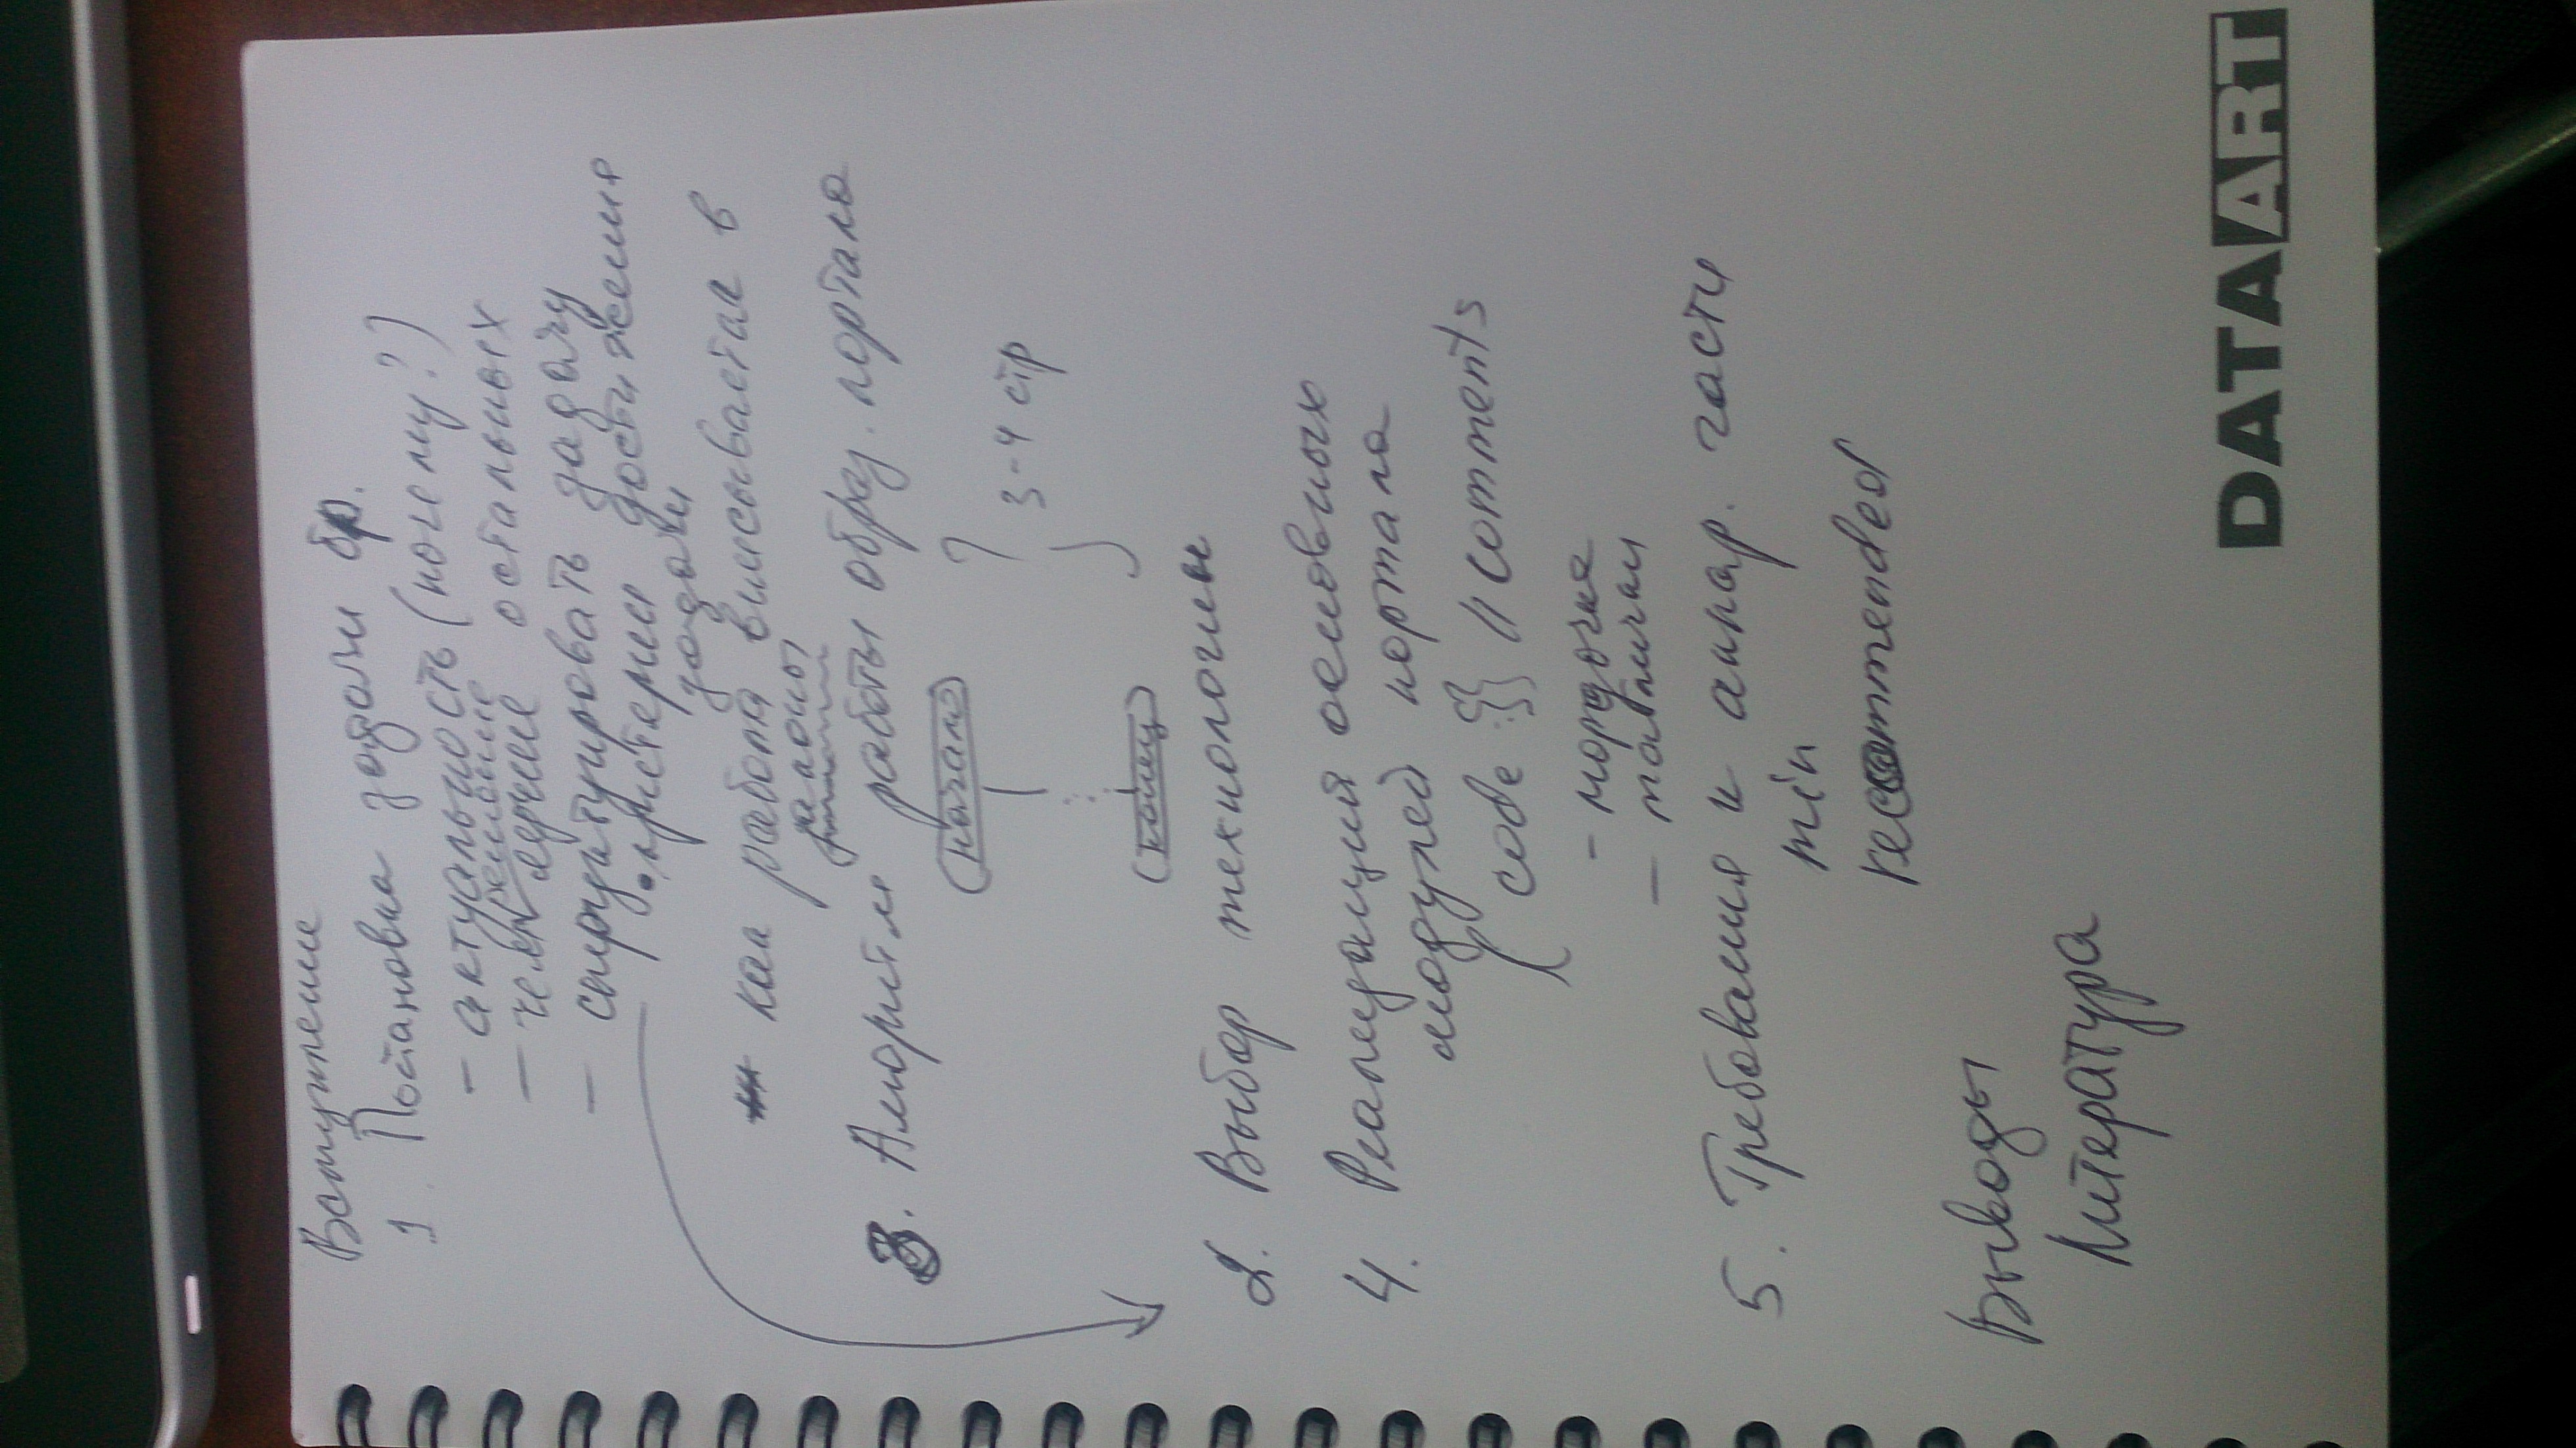 Вступление
1. Постановка задачи бр.
- актуальность (почему?)
решение
- чем лучше остальных
- структуировать задачу
• критерии достижения
задачи
как работа вписывается в
законы
3. Алгоритм работы образ. портала
начало
3-4 стр
конец
2. Выбор технологии
4. Реализация основных
модулей портала
( code {} // comments
- мордочка
- таблички
5. Требования к аппар. части
min
recommended
Выводы
Литература
DATAART